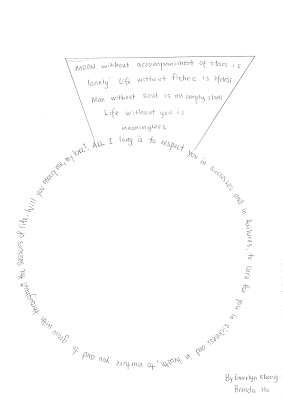 MOON without accompaniment of stars is
lonely. Life without fishes is lifeless.
Man without soul is an empty shell
Life without you is
meaningless.
ALL I long is to respect you in successes and in failures, to care for you in sickness and in health, to nurture you and to grow with throughout the seasons of life. Will you marry me, my love?
By Emerlyn Kheng
Brenda Hu